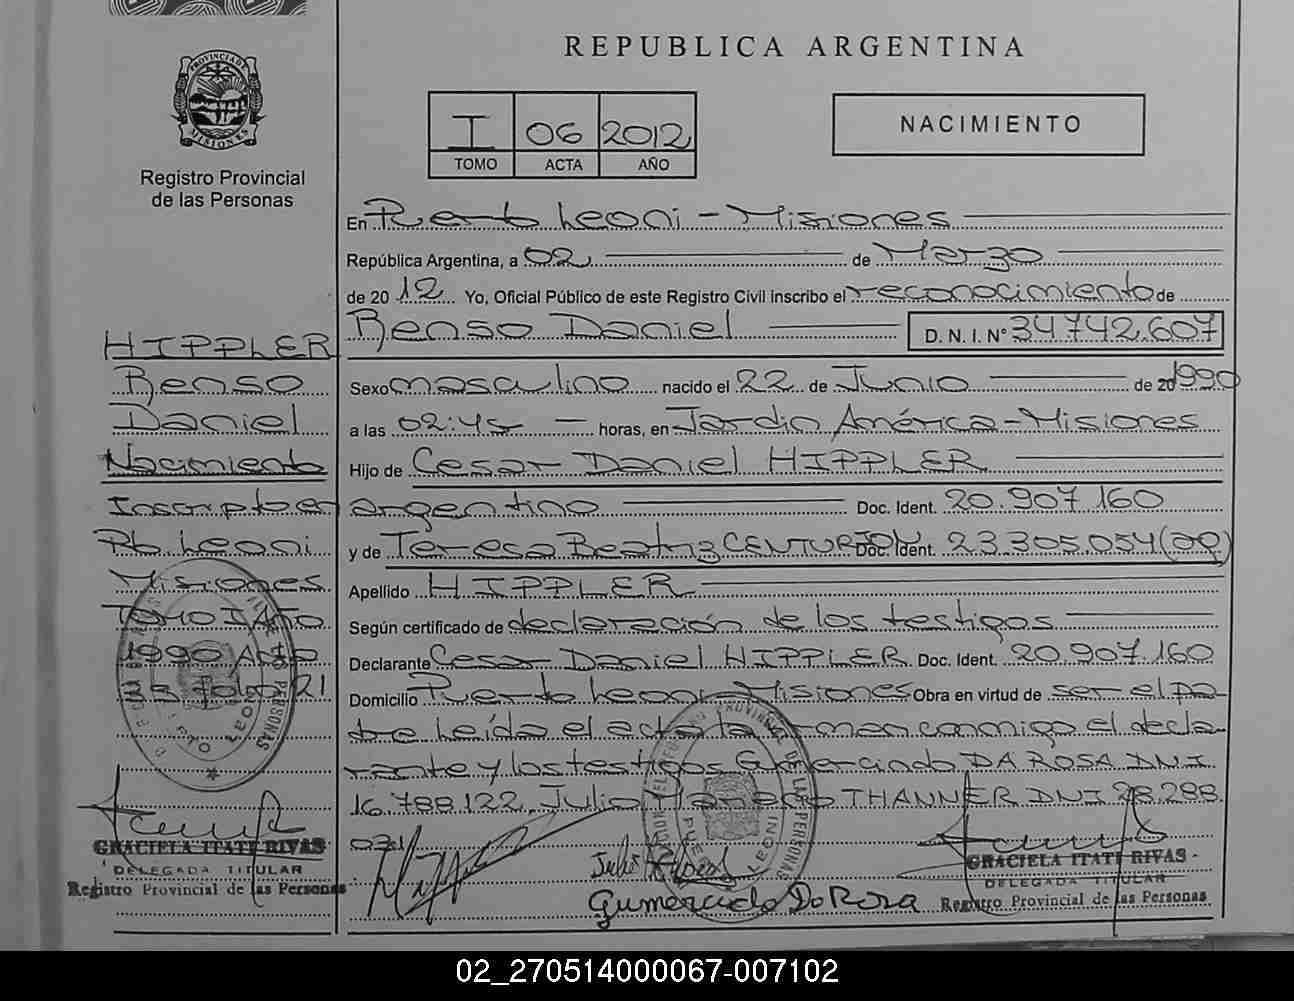 REPUBLICA ARGENTINA
PROVINCIA DE MISIONES
Registro Provincial
de las Personas
I 06 2012
TOMO ACTA AÑO
NACIMIENTO
En Puerto Leoni - Misiones
República Argentina, a 02 de Marzo
de 20 12 Yo, Oficial Público de este Registro Civil inscribo el reconocimiento de
Renso Daniel D. N. I. N° 34.742.607
Sexo masculino nacido el 22 de Junio de 20 1990
a las 02:45 horas, en Jardin América - Misiones
Hijo de Cesar Daniel HIPPLER
argentino Doc. Ident. 20.907.160
y de Teresa Beatriz CENTURION Doc. Ident. 23.305.054 (ar)
Apellido HIPPLER
Según certificado de declaración de los testigos
Declarante Cesar Daniel HIPPLER Doc. Ident. 20.907.160
Domicilio Puerto Leoni Misiones Obra en virtud de ser el pa
dre leída el acta la firman conmigo el decla
rante y los testigos Gumercindo DA ROSA DNI
16.788.122, Julio THANNER DNI 28.288.
071
HIPPLER
Renso
Daniel
Nacimiento
Inscripto en
Pto. Leoni
Misiones
TOMO I Año
1990 Acta
Folio 21
GRACIELA ITATI RIVAS
DELEGADA TITULAR
Registro Provincial de las Personas
Gumercindo Da Rosa
GRACIELA ITATI RIVAS
DELEGADA TITULAR
Registro Provincial de las Personas
02_270514000067-007102